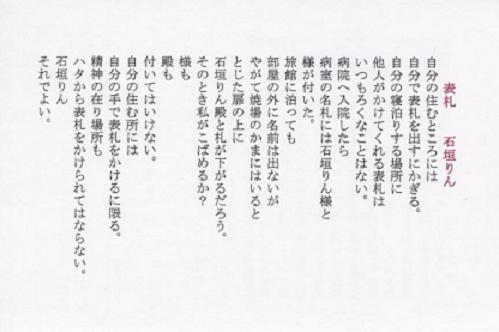 表札　石垣りん
自分の住むところには
自分で表札を出すにかぎる。
自分の寝泊りする場所に
他人がかけてくれる表札は
いつもろくなことはない。
病院へ入院したら
病室の名札には石垣りん様と
様が付いた。
旅館に泊っても
部屋の外に名前は出ないが
やがて焼場のかまにはいると
とじた扉の上に
石垣りん殿と札が下がるだろう。
そのとき私がこばめるか？
様も
殿も
付いてはいけない。
自分の住む所には
自分の手で表札をかけるに限る。
精神の在り場所も
ハタから表札をかけられてはならない。
石垣りん
それでよい。